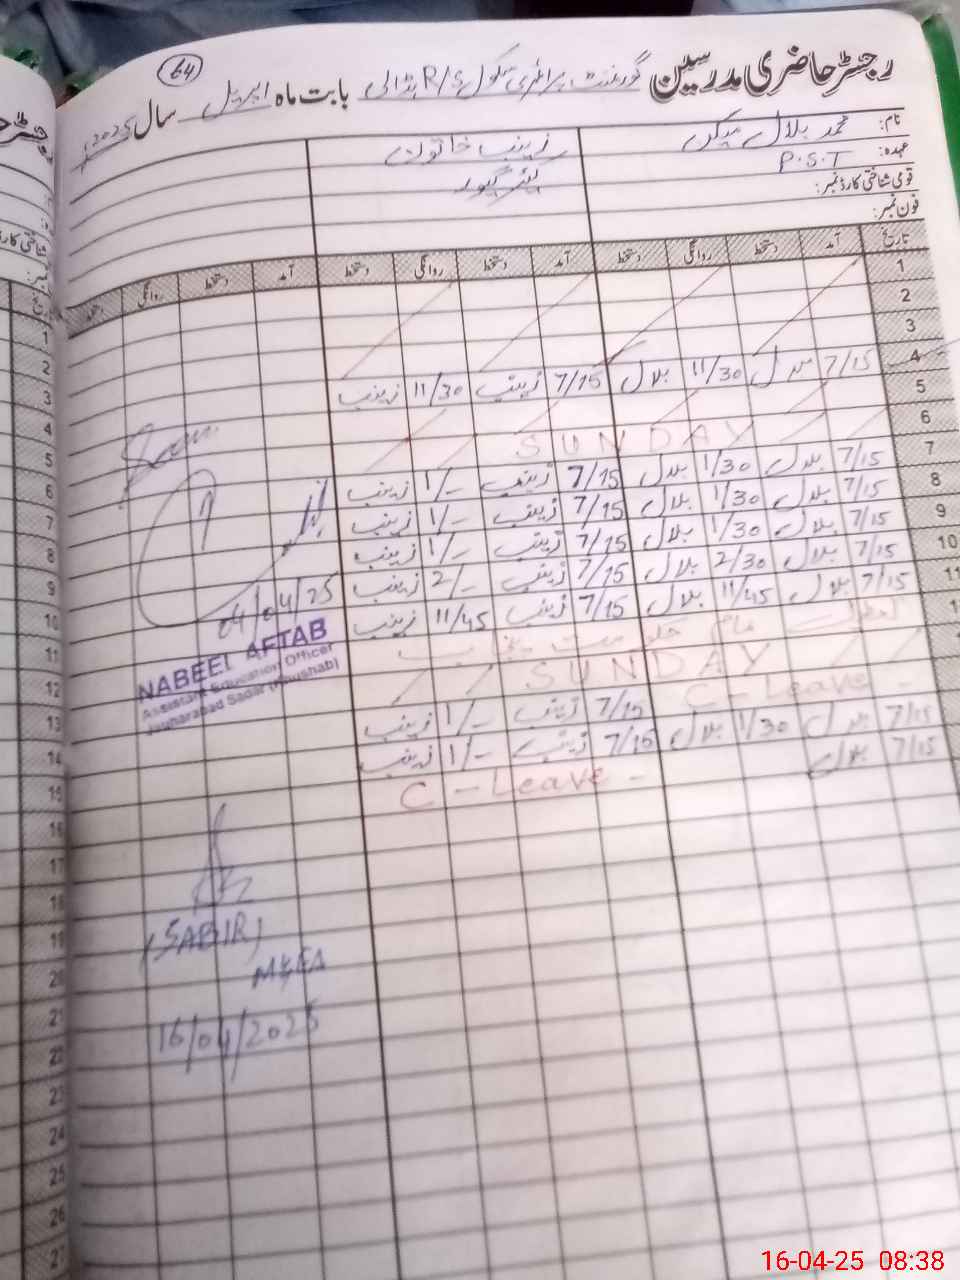 64
رجسٹر حاضری مدرسین گورنمنٹ پرائمری سکول R/S بابت ماہ اپریل سال 2025
نام: محمد بلال زینب خاتون
عہدہ: P.S.T کئیر گیور
قومی شناختی کارڈ نمبر:
فون نمبر:
تاریخ آمد دستخط روانگی دستخط آمد دستخط روانگی دستخط آمد دستخط روانگی دستخط
1
2
3
4 7/15 بلال 11/30 بلال 7/15 زینب 11/30 زینب
5
6 SUNDAY
7 7/15 بلال 1/30 بلال 7/15 زینب 1/- زینب
8 7/15 بلال 1/30 بلال 7/15 زینب 1/- زینب
9 7/15 بلال 1/30 بلال 7/15 زینب 1/- زینب
10 7/15 بلال 2/30 بلال 7/15 زینب 2/- زینب
11 7/15 بلال 11/45 بلال 7/15 زینب 11/45 زینب
عام حکومت پنجاب
SUNDAY
C - Leave - 7/15 زینب 1/- زینب
7/15 بلال 1/30 بلال 7/15 زینب 1/- زینب
7/15 بلال C - Leave -
04/04/25
NABEEL AFTAB
Assistant Education Officer
Jauharabad Sadar (Khushab)
(SABIR)
MEA
16/04/2025
1
2
3
4
5
6
7
8
9
10
11
12
13
14
15
16
17
18
19
20
21
22
23
24
25
26
27
16-04-25 08:38